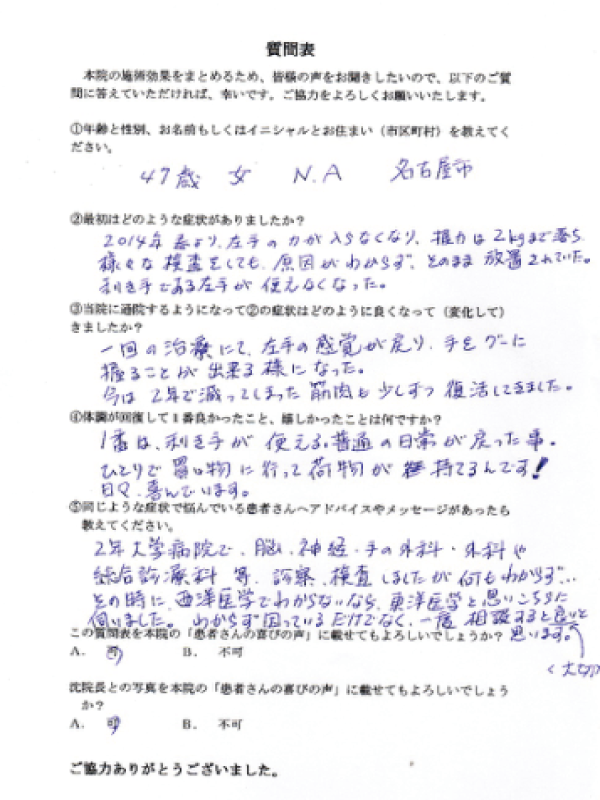 質問表
本院の施術効果をまとめるため、皆様の声をお聞きしたいので、以下のご質
問に答えていただければ、幸いです。ご協力をよろしくお願いいたします。
①年齢と性別、お名前もしくはイニシャルとお住まい（市区町村）を教えてく
ださい。
47歳 女 N.A 名古屋市
②最初はどのような症状がありましたか？
2014年春より、左手の力が入らなくなり、握力は2kgまで落ち
様々な検査をしても、原因がわからず、そのまま放置されていた。
利き手である左手が使えなくなった。
③当院に通院するようになって②の症状はどのように良くなって（変化して）
きましたか？
一回の治療にて、左手の感覚が戻り、手をグーに
握ることが出来る様になった。
今は2年で減ってしまった筋肉も少しずつ復活してきました。
④体調が回復して１番良かったこと、嬉しかったことは何ですか？
1番は、利き手が使える普通の日常が戻った事。
ひとりで買い物に行って荷物が持てるんです！
日々、喜んでいます。
⑤同じような症状で悩んでいる患者さんへアドバイスやメッセージがあったら
教えてください。
2年大学病院で、脳、神経・手の外科・外科や
総合診療科等、診察、検査しましたが何もわからず…
その時に、西洋医学でわからないなら、東洋医学と思いこちらに
伺いました。わからず困っているだけでなく、一度相談すると良いと
思います。
この質問表を本院の「患者さんの喜びの声」に載せてもよろしいでしょうか？
A. 可 B. 不可
く大切
沈院長との写真を本院の「患者さんの喜びの声」に載せてもよろしいでしょう
か？
A. 可 B. 不可
ご協力ありがとうございました。